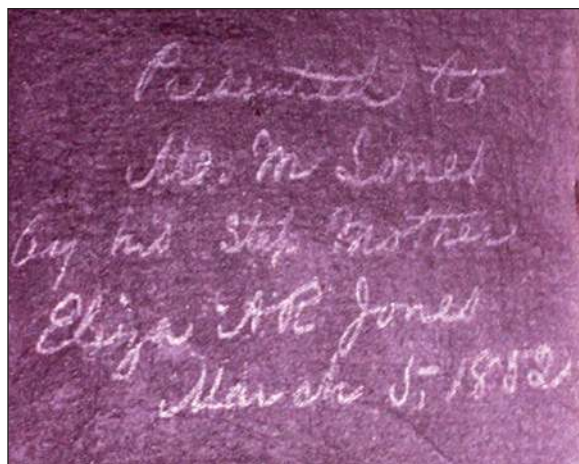 Presented to
M Jones
by his Step Mother
Eliza A R Jones
March 5, 1852